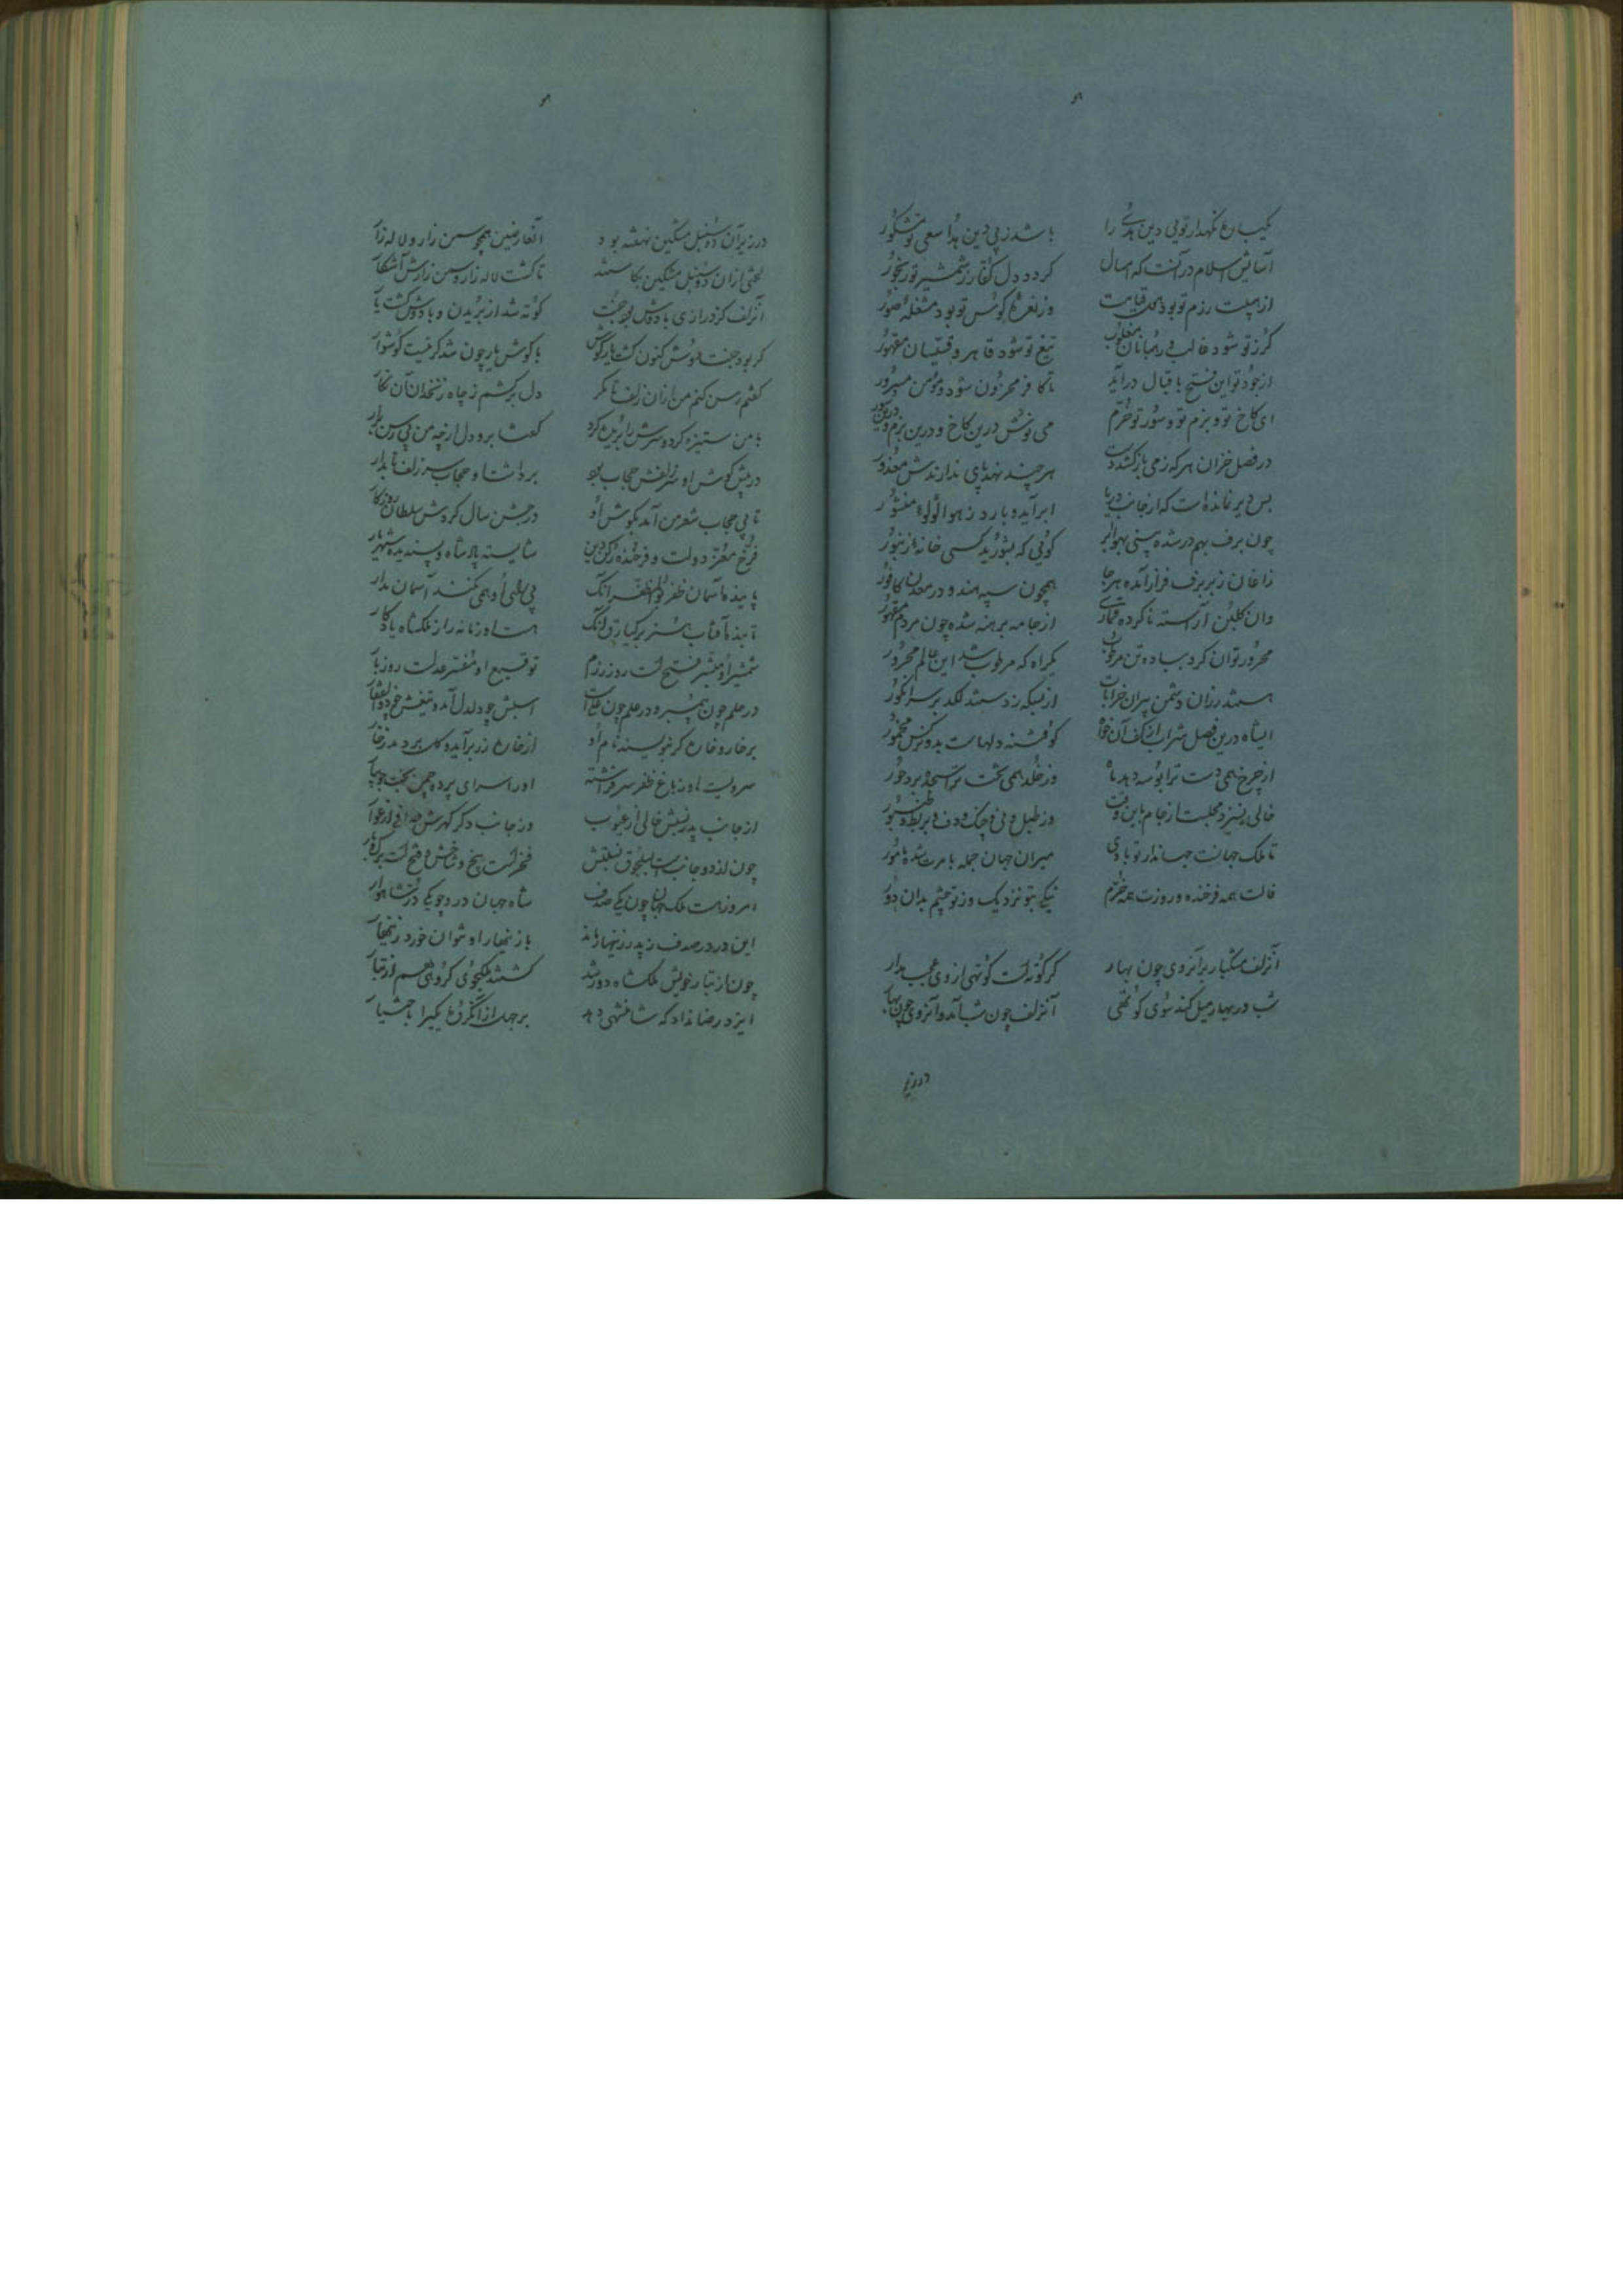 یکباره نگهدار تویی دین هدی را باشد ز پی دین هدا سعی تو مشکور
آسایش اسلام در آنست که امسال گردد دل کفار ز شمشیر تو رنجور
از هیبت رزم تو بود قیامت وز نعره کوس تو بود مشغله صور
گرز تو شود غالب و رهبانان مغلوب تیغ تو شود قاهر و قسیسان مقهور
از جود تو این فتح باقبال درآید تا کافر محزون شود و مؤمن مسرور
ای کاخ تو و بزم تو و سور تو خرم می نوش درین کاخ و درین بزم و درین سور
در فصل خزان هر که ز می باز کشد دست هر چند نهد پای ندارندش معذور
بس دیر نماندست که از جانب دریا ابر آید و بارد ز هوا لؤلؤ منثور
چون برف بهم در شده بینی بهوا بر گویی که بشورید کسی خانه زنبور
زاغان زبر برف فراز آمده هر جا همچون سپه هندو در معدن کافور
وان گلبن آراسته ناکرده از جامه برهنه شده چون مردم مقهور
محرور توان کرد بباده تن مرطوب یکراه که مرطوب شد این عالم محرور
هستند رزان دشمن پیران خرابات از بسکه زدستند لگد بر سر انگور
ایشاه درین فصل شراب از کف آن خواه کو فتنه دلهاست بدو نرگس مخمور
از چرخ همی دست ترا بوسه دهد ماه وز خلد همی تخت ترا سجده برد حور
خالی نسزد مجلست از جام باین وقت وز طبل و نی و چنگ و دف و بربط و طنبور
تا ملک جهانست جهاندار تو بادی میران جهان جمله بامرت شده مأمور
فالت همه فرخنده و روزت همه خرم نیکی بتو نزدیک وز تو چشم بدان دور
آنزلف مشکبار بر آنروی چون بهار گر کوته است کوتهی از وی عجب مدار
شب در بهار میل کند سوی کوتهی آنزلف چون شب آمد و آنروی چون بهار
در زیر
در زیر آن دو سنبل مشکین نهفته بود آنعارضین همچو سمن زار و لاله زار
لختی از آن دو سنبل مشکین بکاستند تا گشت لاله زار و سمن زارش آشکار
آنزلف کز درازی با دوش بود جفت کوته شد از بریدن و با دوش گشت یار
گر بود جفت دوش کنون گشت یار گوش با گوش یار چون شد گر نیست گوشوار
گفتم رسن کنم من از آن زلف تا مگر دل برکشم ز چاه زنخدان آن نگار
با من ستیزه کرد و سرش را بریده کرد گفتا برو دل از چه من بی رسن برآر
در پیش گوش او سر زلفش حجاب بود برداشت او حجاب سر زلف تابدار
تا بی حجاب شعر من آمد بگوش او در جشن سال گردش سلطان روزگار
فرخ معز دولت و فرخنده رکن دین شایسته پادشاه و پسندیده شهریار
پاینده آسمان ظفر بوالمظفر آنک بی او همی کنند آسمان مدار
تابنده آفتاب هنر برکیارق آنک هست او زمانه را ز ملکشاه یادگار
شمشیر او مبشر فتح است روز رزم توقیع او مفسر عدلست روز بار
در حلم چون پیمبر و در علم چون علی است اسبش چو دلدل آمد و تیغش چو ذوالفقار
بر خار و خاره گر بنویسند نام او از خاره زر برآید و گل بردمد ز خار
سرویست او ز باغ ظفر سر فراشته او را سرای پرده چمن تخت جویبار
از جانب پدر نسبش خالی از عیوب وز جانب دگر گهرش صافی از عوار
چون از دو جانبست بسلجوق نسبتش فخر است بیخ و نازش و فتح است برگ و بار
امروز هست ملک جهان چون یکی صدف شاه جهان درو چو یکی در شاهوار
این در در صدف ز پدر زینهار ماند با زینهار او نتوان خورد زینهار
چون از تبار خویش ملکشاه دور شد گشتند ملکجوی گروهی هم از تبار
ایزد رضا نداد که شاهنشهی دهد